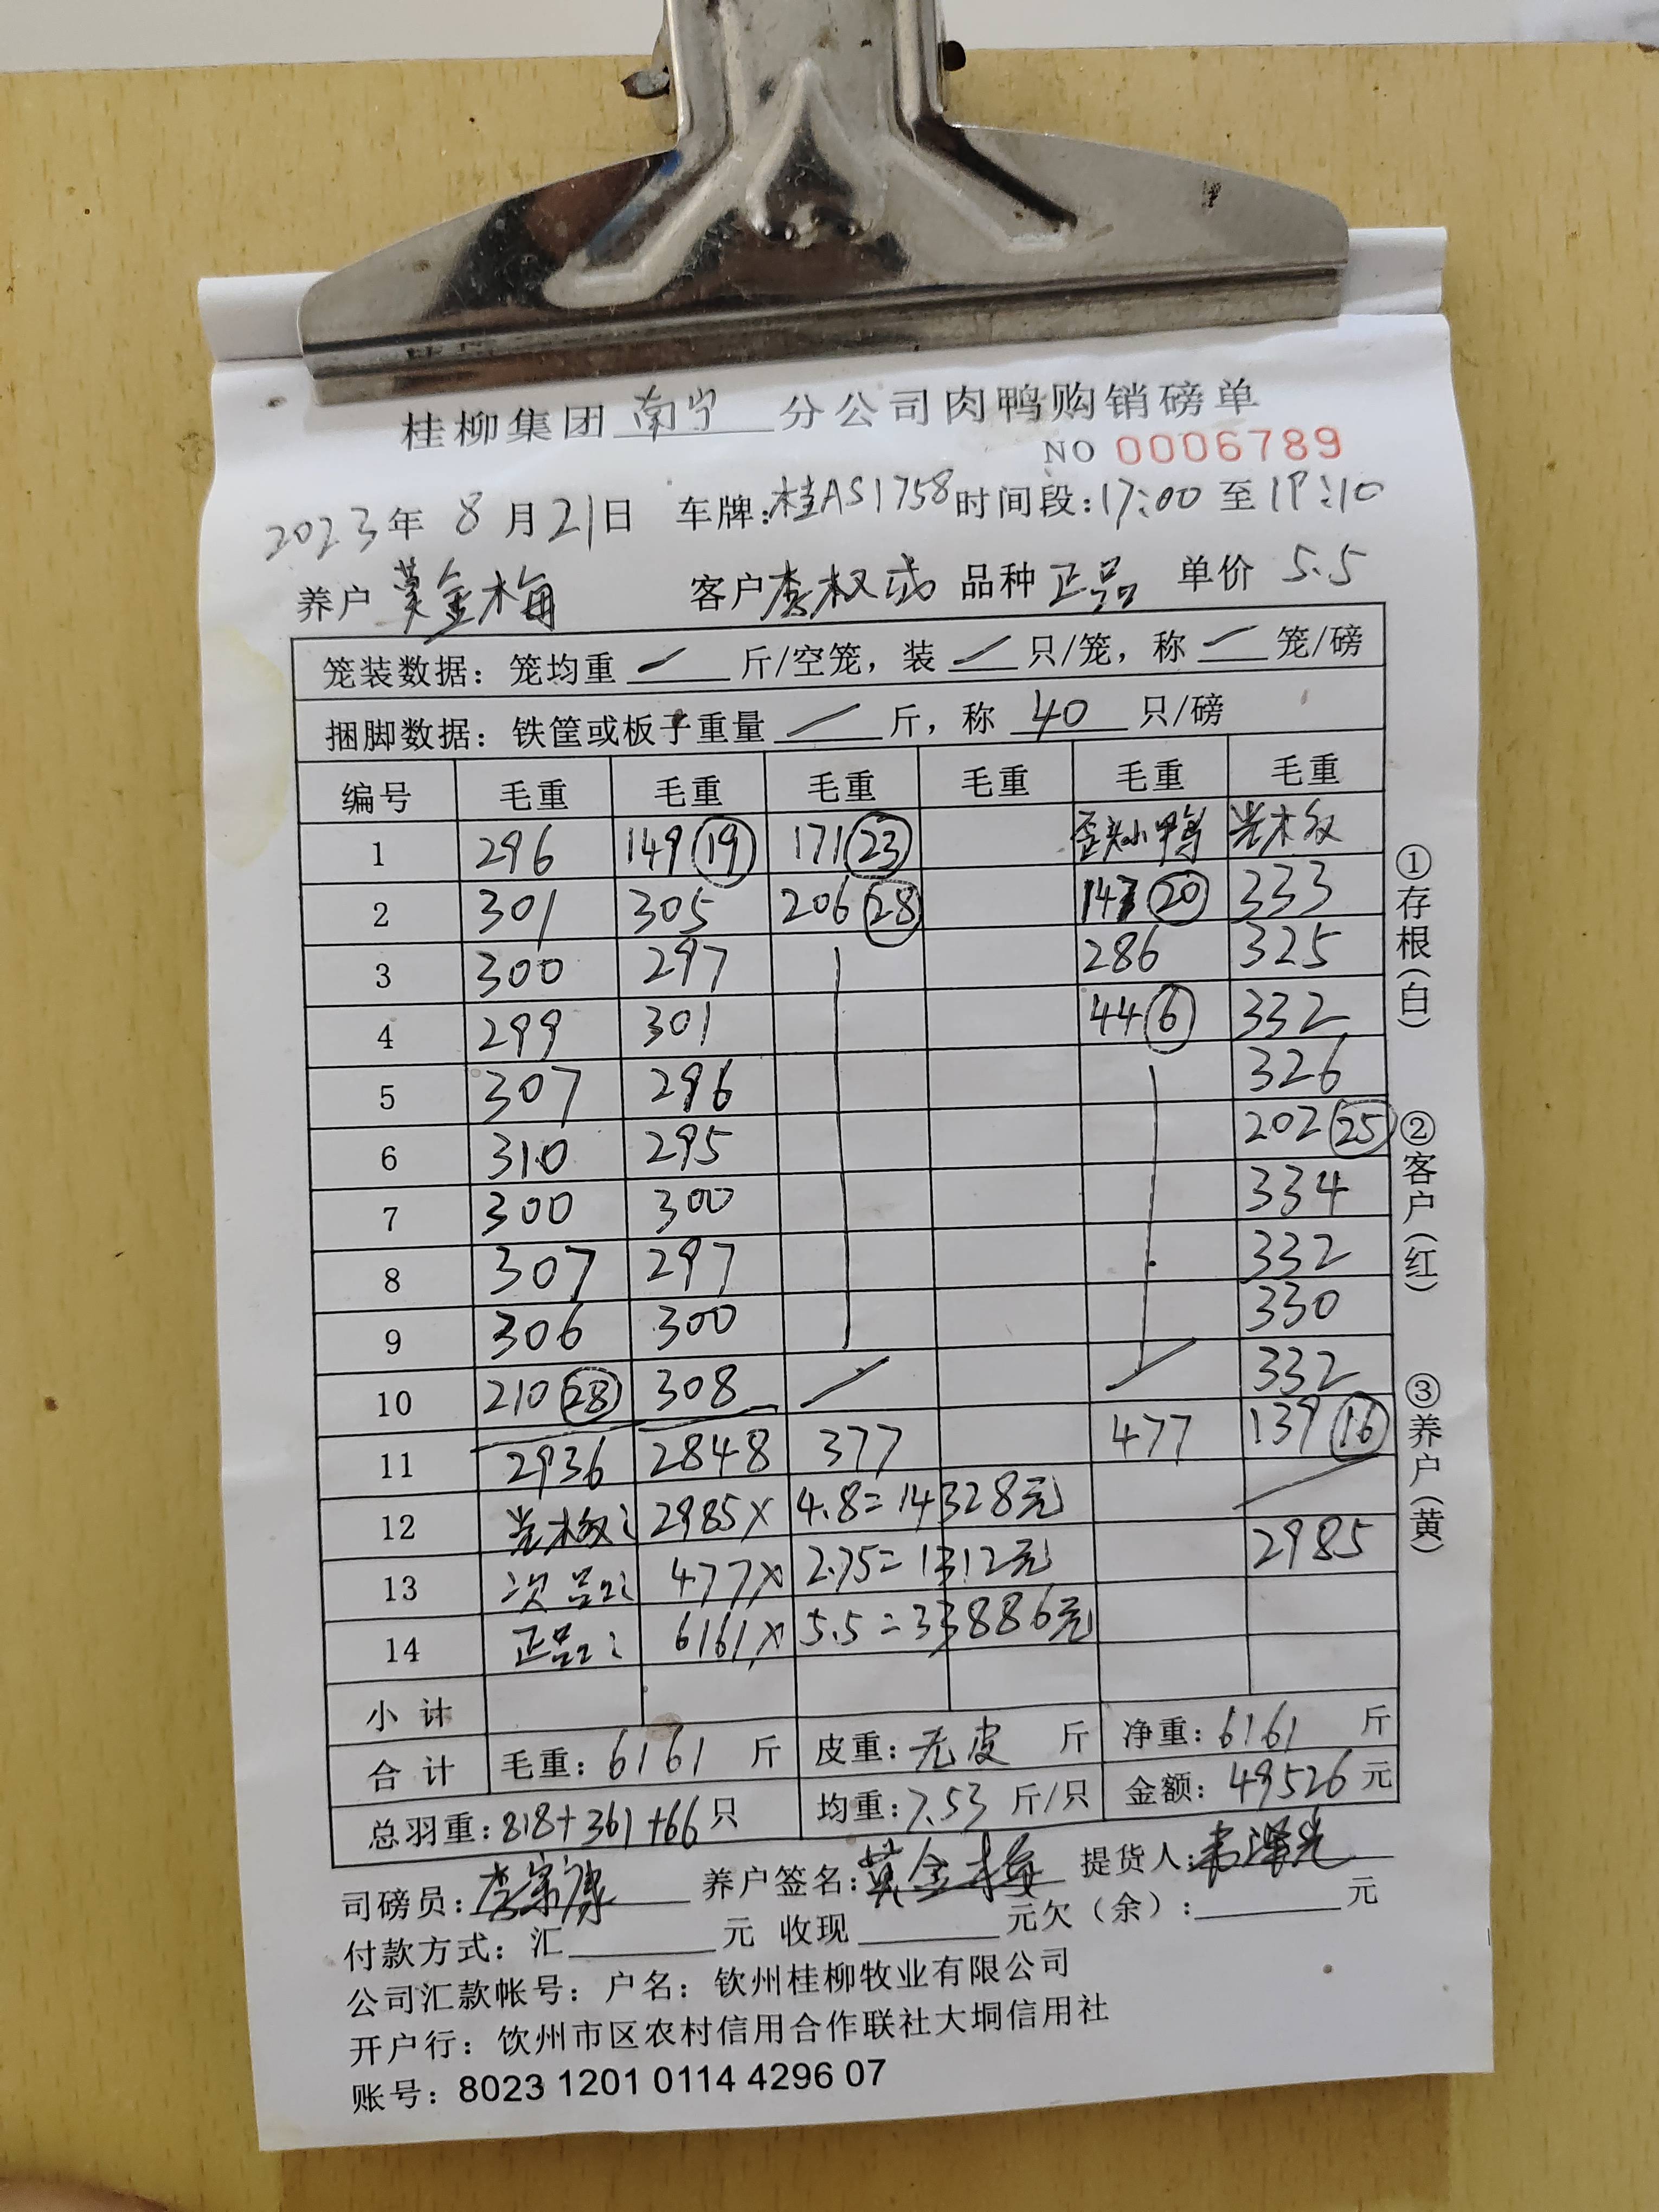 桂柳集团 南宁 分公司肉鸭购销磅单
NO 0006789
2023年 8 月 21日 车牌:桂AS1758 时间段:17:00 至 19:10
养户 莫金梅 客户 李权 品种 正品 单价 5.5
笼装数据：笼均重 / 斤/空笼，装 / 只/笼，称 / 笼/磅
捆脚数据：铁筐或板子重量 / 斤，称 40 只/磅
编号 毛重 毛重 毛重 毛重 毛重 毛重
1 296 149 19 171 23 歪头小鸭
2 301 305 206 28 147 20 333
3 300 297 286 325
4 299 301 44 6 332
5 307 296 326
6 310 295 202 25
7 300 300 334
8 307 297 332
9 306 300 330
10 210 28 308 332
11 2936 2848 377 477 139 16
12 2985× 4.8=14328元
13 次品: 477× 2.75=1312元 2985
14 正品: 6161× 5.5=33886元
小计
合计 毛重：6161 斤 皮重：无皮 斤 净重：6161 斤
总羽重：818+361+66 只 均重：7.53 斤/只 金额：49526 元
①存根(白) ②客户(红) ③养户(黄)
司磅员：李宗康 养户签名：莫金梅 提货人：韦泽光
付款方式：汇 元 收现 元欠（余）： 元
公司汇款帐号：户名：钦州桂柳牧业有限公司
开户行：饮州市区农村信用合作联社大垌信用社
账号：8023 1201 0114 4296 07